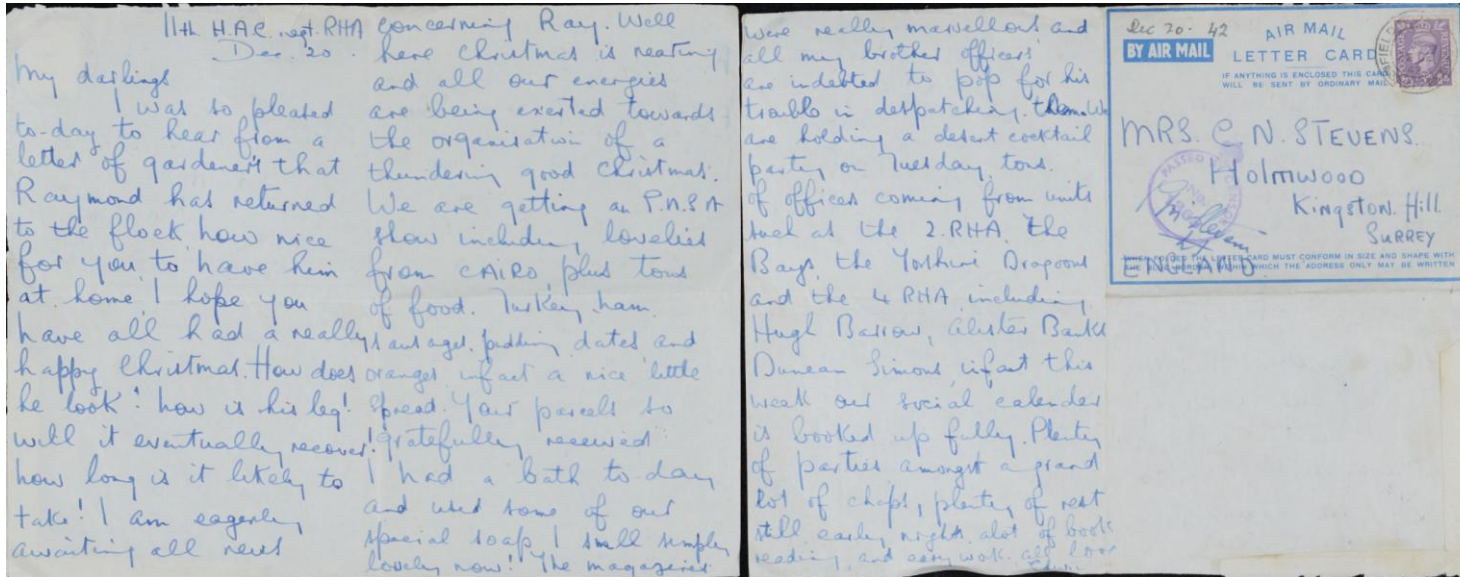 11th H.A.C. regt. RHA
Dec. 20.
My darlings
I was so pleased
to-day to hear from a
letter of gardener's that
Raymond has returned
to the flock, how nice
for you, to have him
at home, I hope you
have all had a really
happy Christmas. How does
he look! how is his leg!
will it eventually recover!
how long is it likely to
take! I am eagerly
awaiting all news
concerning Ray. Well
here Christmas is nearing
and all our energies
are being exerted towards
the organisation of a
thundering good Christmas.
We are getting an E.N.S.A
show including lovelies
from CAIRO, plus tons
of food. Turkey, ham,
sausages, pudding, dates and
oranges infact a nice little
spread. Your parcels so
gratefully received
I had a bath to-day
and used some of our
special soap, I smell simply
lovely now! The magazines
were really marvellous and
all my brother officers
are indebted to pop for his
trouble in despatching them. We
are holding a desert cocktail
party on Tuesday, tons.
of officers coming from units
such as the 2. RHA. the
Bays, the Yorkshire Dragoons
and the 4 RHA, including
Hugh Barrow, Alister Banks
Duncan Simons, infact this
weak our social calender
is booked up fully. Plenty
of parties amongst a grand
lot of chaps, plenty of rest
still, early nights, alot of book
reading, and easy work. all love
Dec 20. 42
BY AIR MAIL
AIR MAIL
LETTER CARD
IF ANYTHING IS ENCLOSED THIS CARD
WILL BE SENT BY ORDINARY MAIL
MRS. C N. STEVENS.
Holmwood
Kingston. Hill.
SURREY
ENGLAND
PASSED
LETTER CARD MUST CONFORM IN SIZE AND SHAPE WITH
WHICH THE ADDRESS ONLY MAY BE WRITTEN